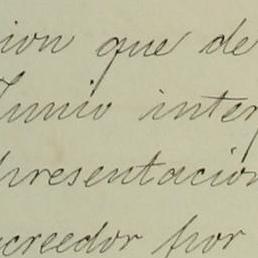 ion que de
Junio inter
presentacion
acreedor por